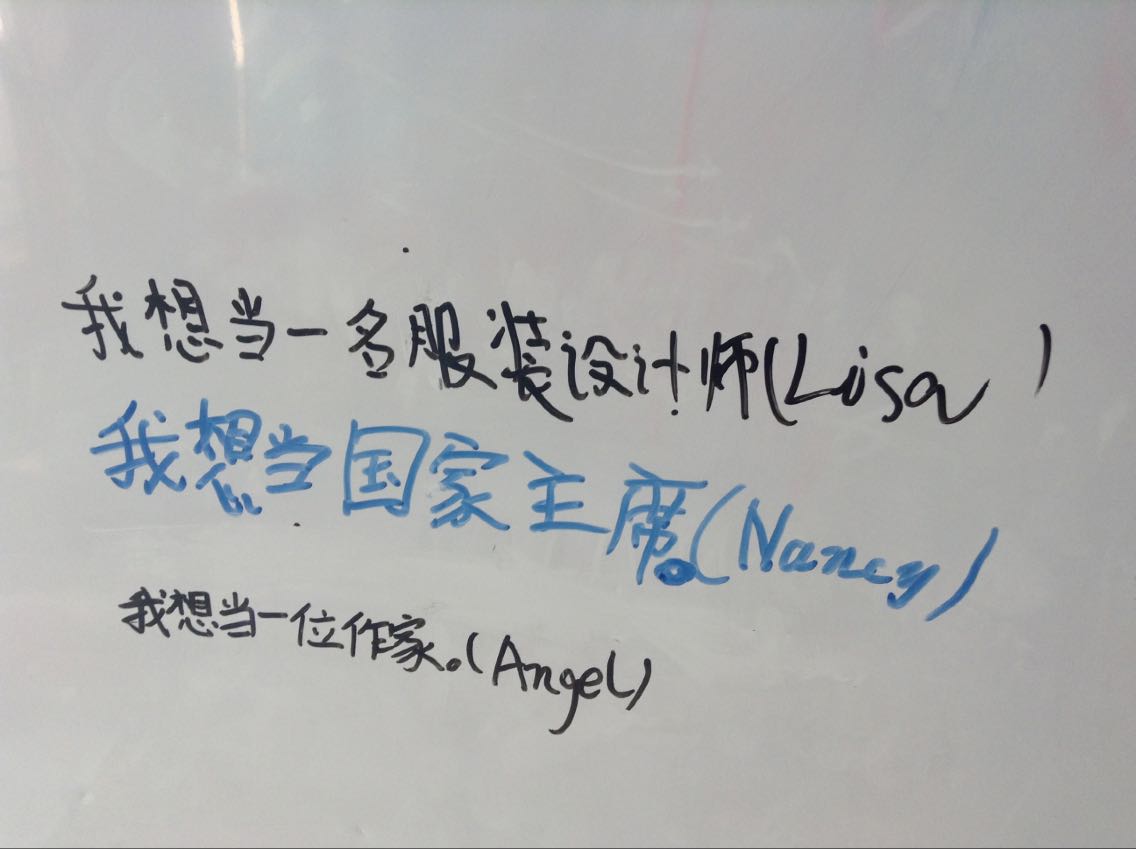 我想当一名服装设计师(Lisa )
我想当国家主席。(Nancy)
我想当一位作家。(Angel)